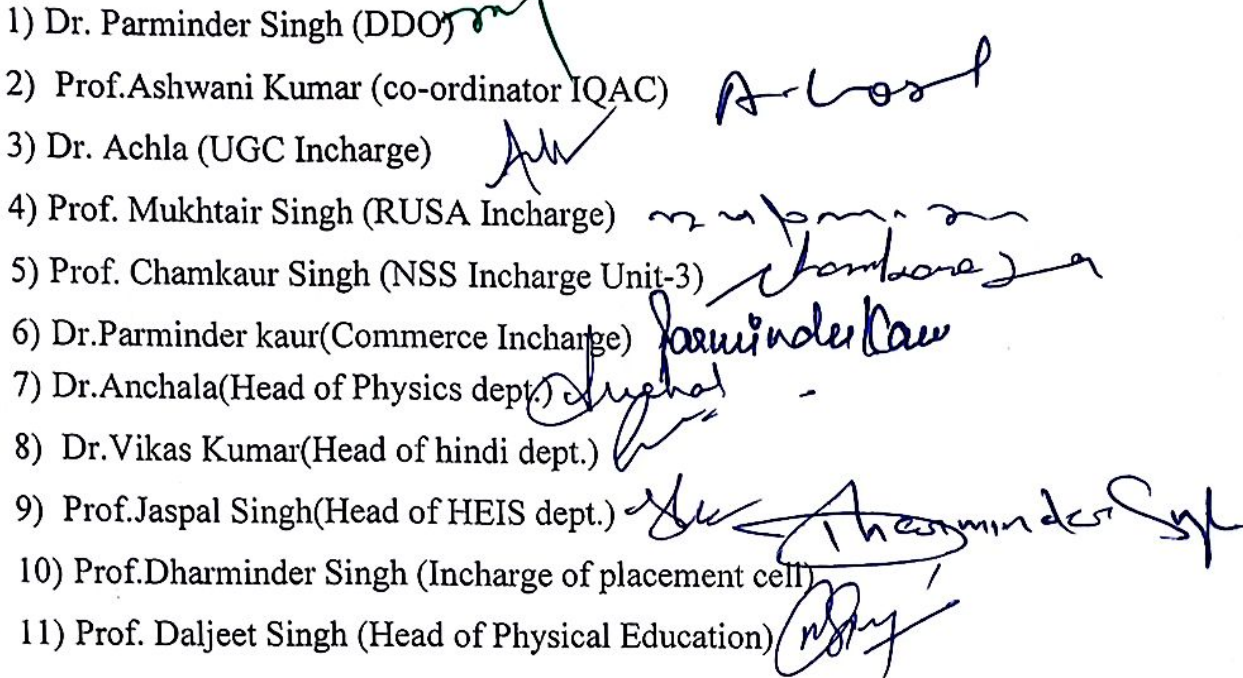 1) Dr. Parminder Singh (DDO)
2) Prof.Ashwani Kumar (co-ordinator IQAC)
3) Dr. Achla (UGC Incharge)
4) Prof. Mukhtair Singh (RUSA Incharge)
5) Prof. Chamkaur Singh (NSS Incharge Unit-3)
6) Dr.Parminder kaur(Commerce Incharge) Parminder Kaur
7) Dr.Anchala(Head of Physics dept.)
8) Dr.Vikas Kumar(Head of hindi dept.)
9) Prof.Jaspal Singh(Head of HEIS dept.)
10) Prof.Dharminder Singh (Incharge of placement cell)
11) Prof. Daljeet Singh (Head of Physical Education)